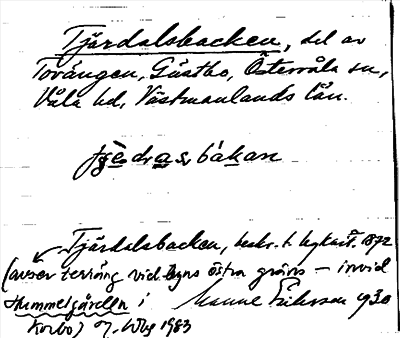 Tjärdalsbacken, del av
Torängen, Gästbo, Östervåla sn,
Våla hd, Västmanlands län.
Tjärdalsbacken, beskr. t. lagaskif. 1872
(avser terräng vid byns östra gräns – invid
Hummelgården i Manne Eriksson 1930
Korbo)